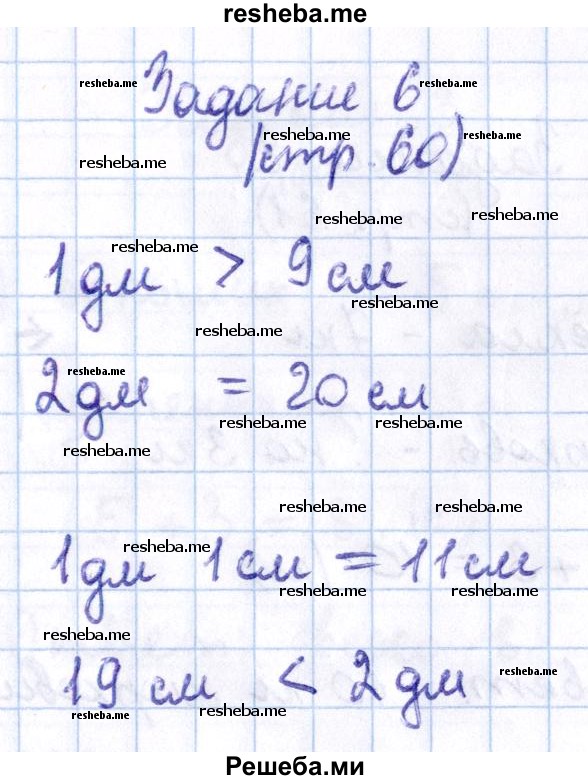 resheba.me
resheba.me
Задание 6
resheba.me
resheba.me
resheba.me
resheba.me
(стр. 60)
resheba.me
resheba.me
resheba.me
1 дм > 9 см
resheba.me
resheba.me
resheba.me
2 дм = 20 см
resheba.me
resheba.me
resheba.me
resheba.me
resheba.me
resheba.me
1 дм 1 см = 11 см
resheba.me
resheba.me
resheba.me
resheba.me
19 см < 2 дм
resheba.me
resheba.me
Решеба.ми